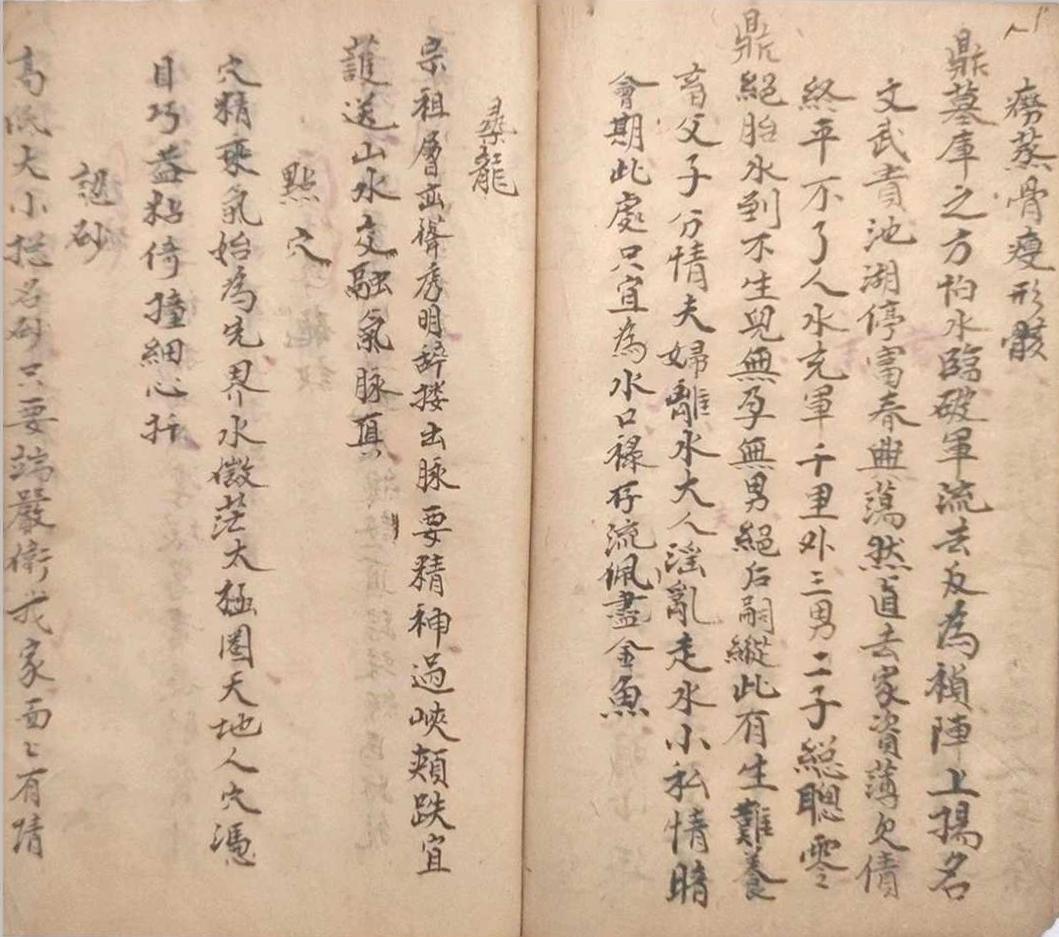 癆蒸骨瘦形骸
鼎墓庫之方怕水臨破軍流去反為禎陣上揚名
文武貴池湖停富春典蕩然直去家資薄欠債
終平不了人水充軍千里外三男二子総聰零
鼎絕胎水到不生兒無孕無男絕后嗣縱此有生難養
育父子分情夫婦離水大人滛亂走水小私情暗
會期此處只宜為水口祿存流佩盡金魚
尋龍
宗祖層巒聳秀明辞摟出脉要精神過峽頬跌宜
護送山水交融氣脉真
點穴
穴精乘氣始為先界水微茫太極圈天地人穴憑
目巧葢粘倚撞細心扦
認砂
高低大小揔名砂只要端嚴衛我家面〻有情